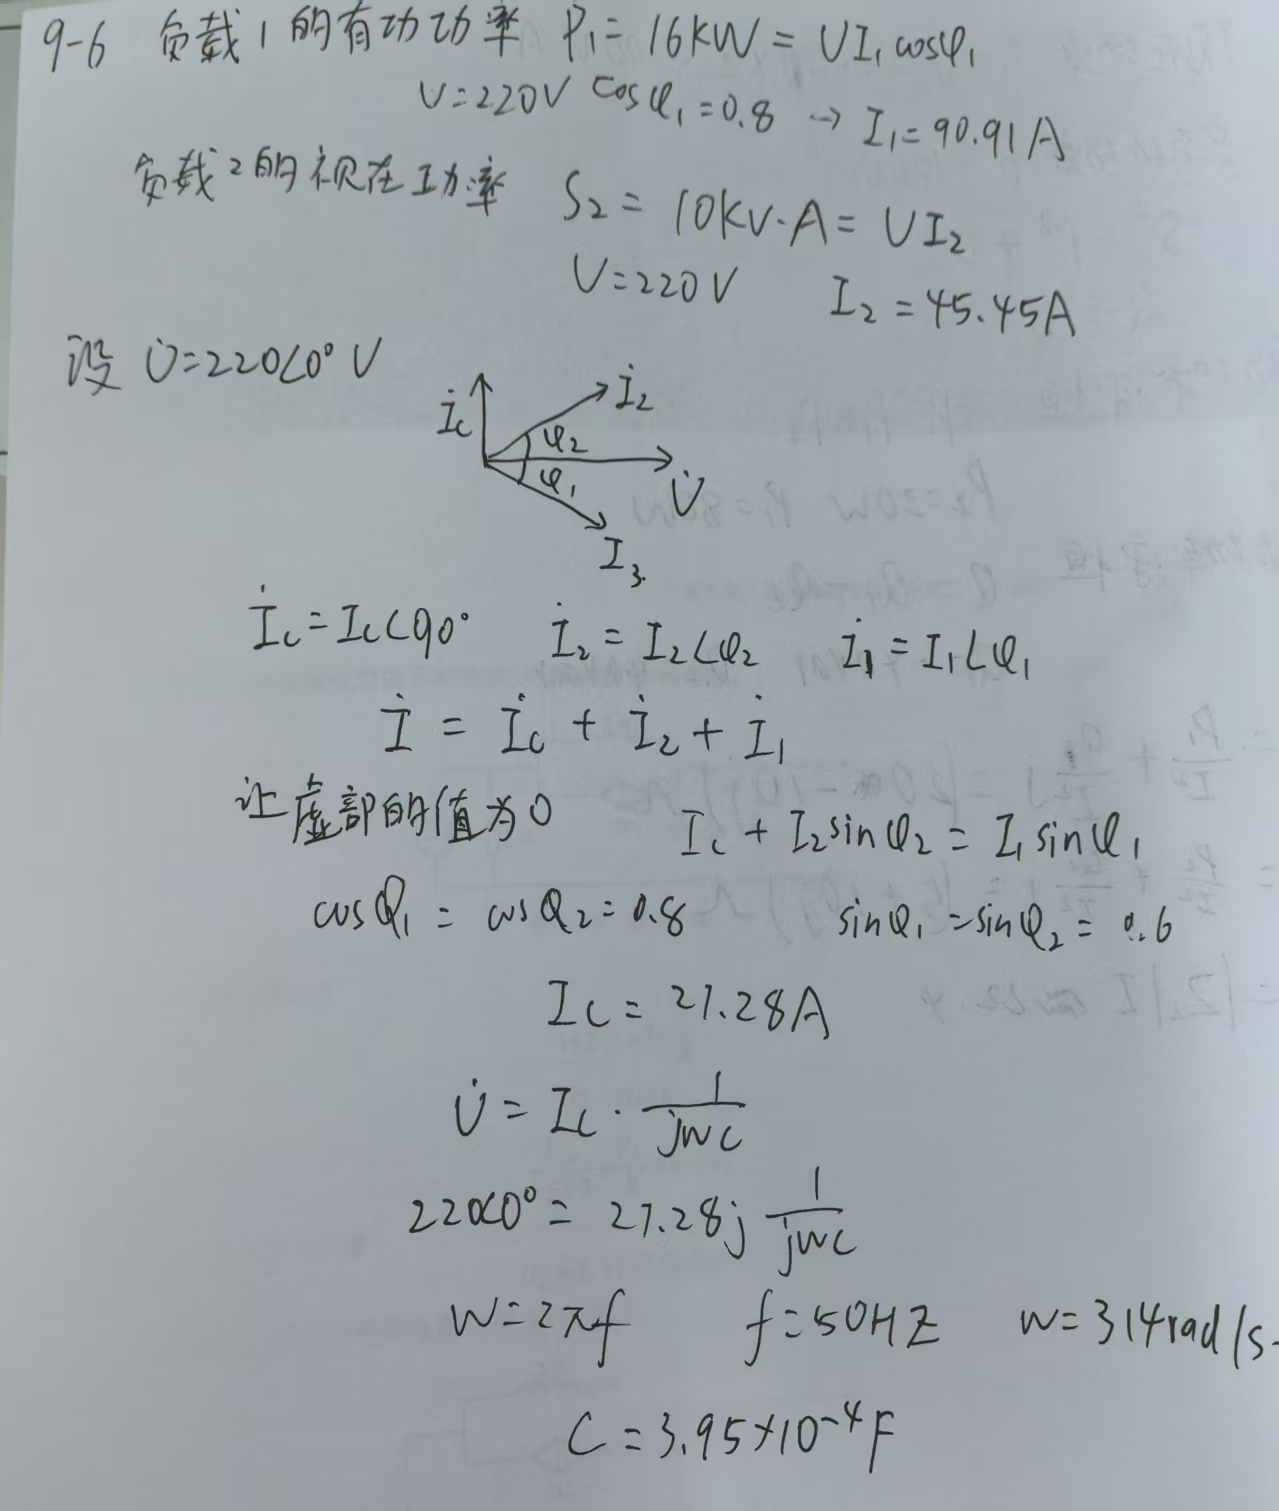 9-6 负载1的有功功率 P₁=16KW=UI₁cosφ₁
U=220V cosφ₁=0.8 → I₁=90.91A
负载2的视在功率 S₂=10KV·A=UI₂
U=220V I₂=45.45A
设 U̇=220∠0° V
İc İ₂
φ₂
φ₁ U̇
I₃.
İc=Ic∠90° İ₂=I₂∠φ₂ İ₁=I₁∠φ₁
İ=İc+İ₂+İ₁
让虚部的值为0 Ic+I₂sinφ₂=I₁sinφ₁
cosφ₁=cosφ₂=0.8 sinφ₁=sinφ₂=0.6
Ic=27.28A
U̇=Ic·1/jwc
220∠0°=27.28j 1/jwc
w=2πf f=50HZ w=314rad/s.
C=3.95×10⁻⁴F